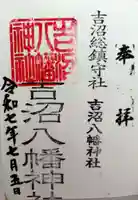 奉拝
吉沼総鎮守社
吉沼八幡神社
吉沼八幡神社
吉沼八幡神社
令和七年七月五日